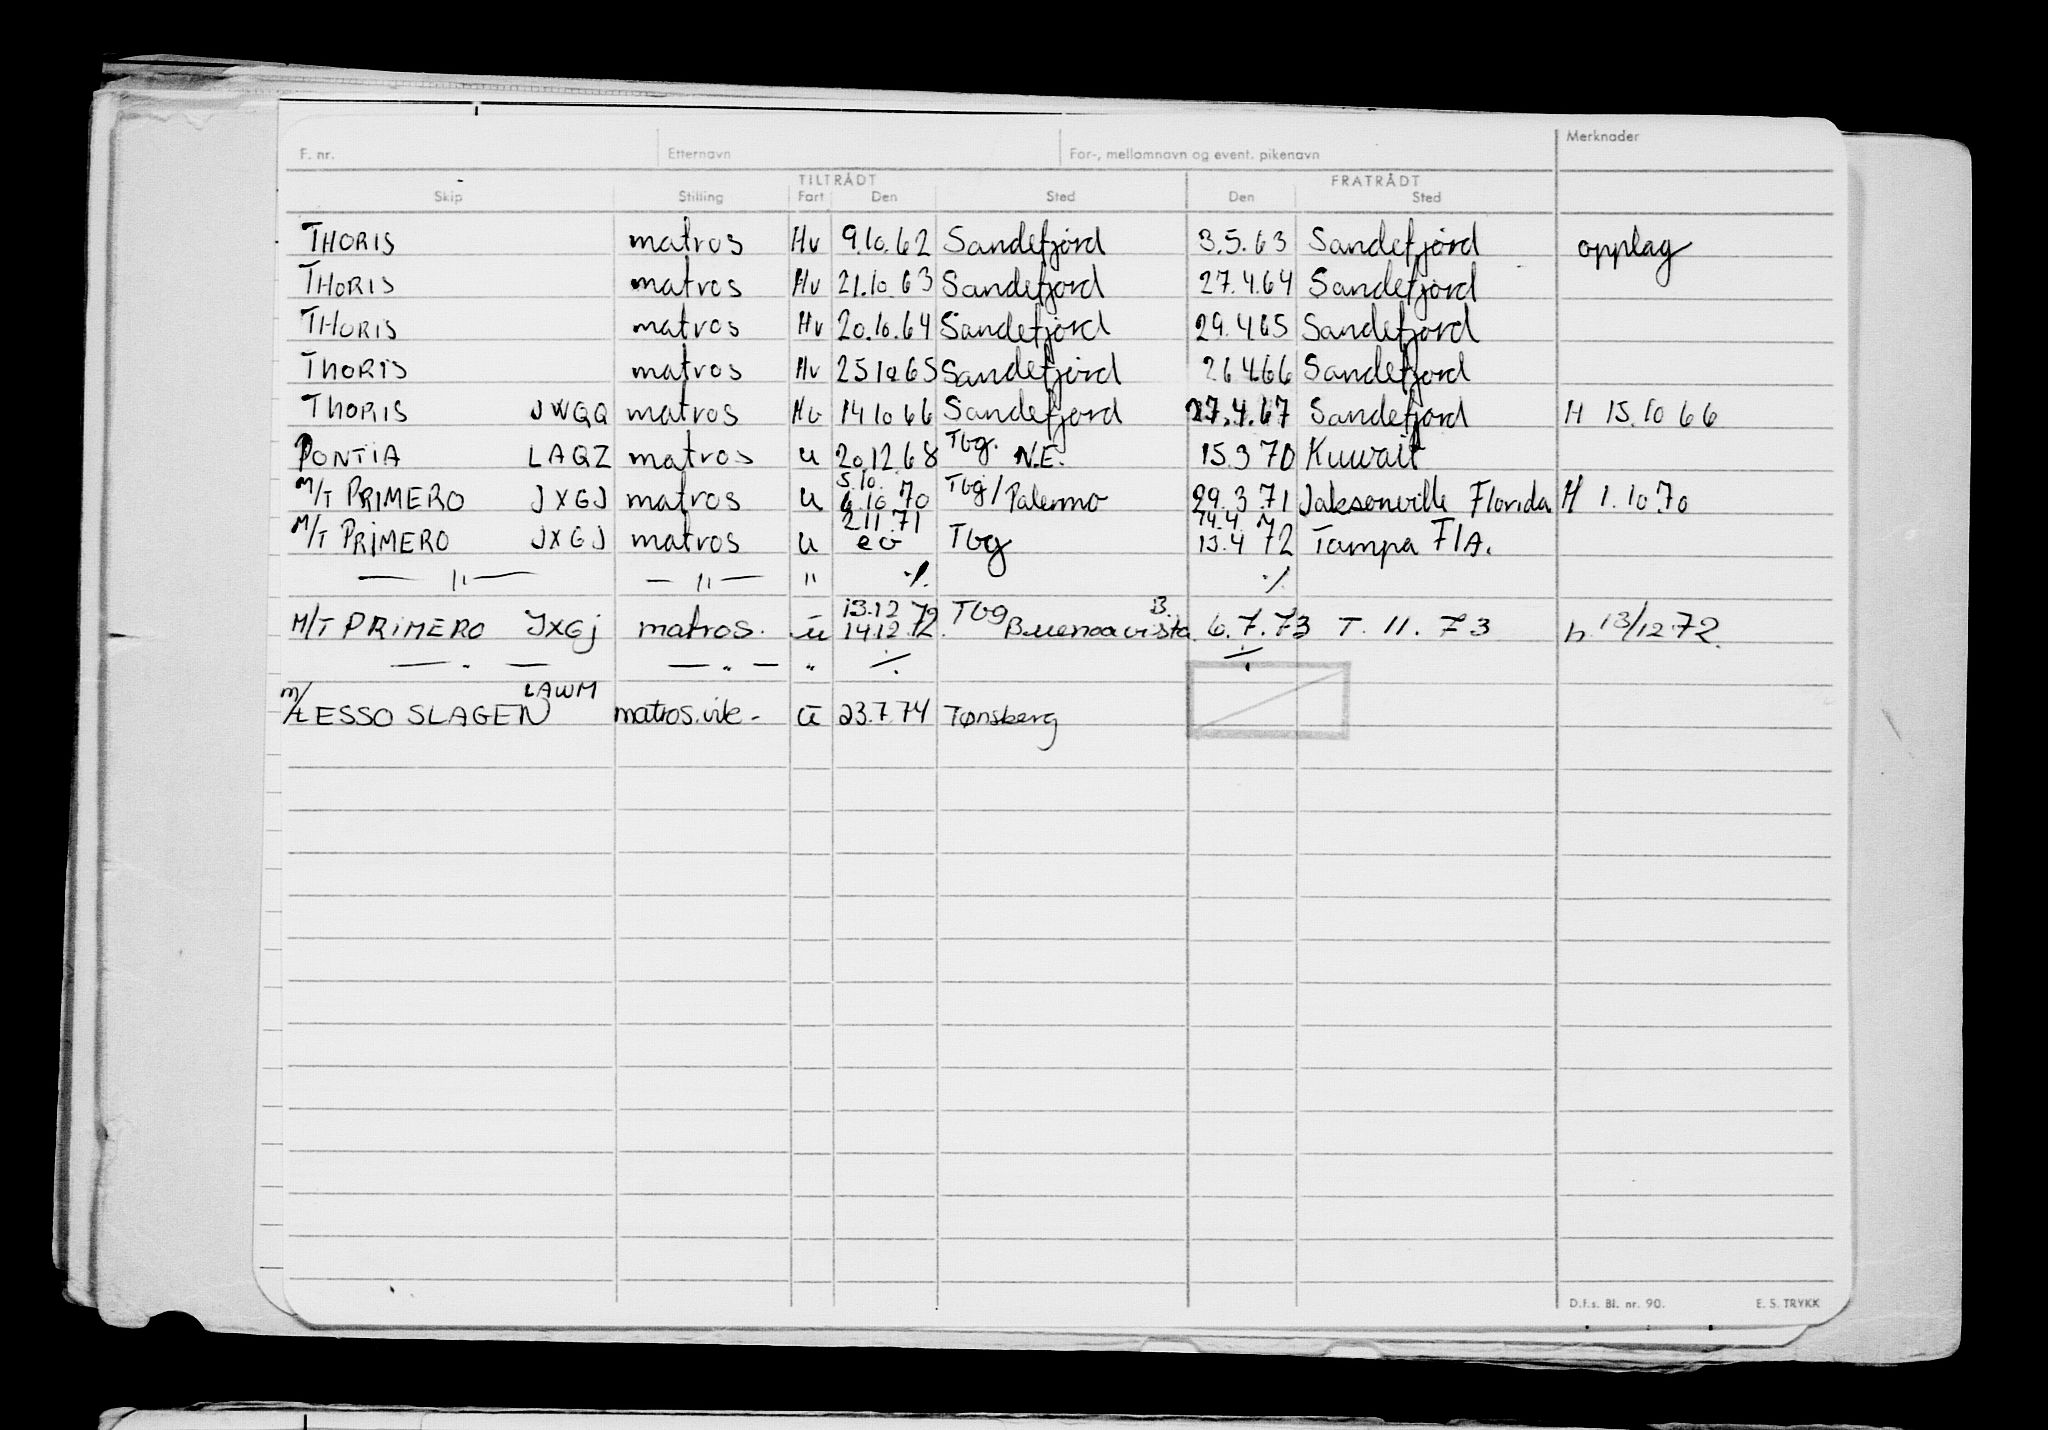 F. nr. Etternavn For-, mellomnavn og event. pikenavn Merknader
TILTRÅDT FRATRÅDT
Skip Stilling Fart Den Sted Den Sted
THORIS matros Hv 9.10.62 Sandefjord 3.5.63 Sandefjord opplag
THORIS matros Hv 21.10.63 Sandefjord 27.4.64 Sandefjord
THORIS matros Hv 20.10.64 Sandefjord 29.4.65 Sandefjord
THORIS matros Hv 25 10 65 Sandefjord 26 4.66 Sandefjord
THORIS JWQQ matros Hv 14 10 66 Sandefjord 27.4.67 Sandefjord H 15.10 66
PONTIA LAQZ matros u 20.12.68 Tbg. N.E. 15.3 70 Kuwait
5.10.
M/T PRIMERO JXGJ matros u 6.10.70 Tbg/Palermo 29.3.71 Jaksonville Florida H 1.10.70
2.11.71 14.4.
M/T PRIMERO JXGJ matros u Tbg 13.4 72 Tampa FlA.
— " — — " — " ·/. ·/.
13.12 72 Tbg B.
M/T PRIMERO JXGj matros. u 14.12.72. Buenoavista 6.7.73 T. 11. 73 h. 13/12 72.
— " — — " — " ·/. ·/.
LAWM
m/t ESSO SLAGEN matros.vik- u 23.7.74 Tønsberg
D.f.s. Bl. nr. 90. E. S. TRYKK